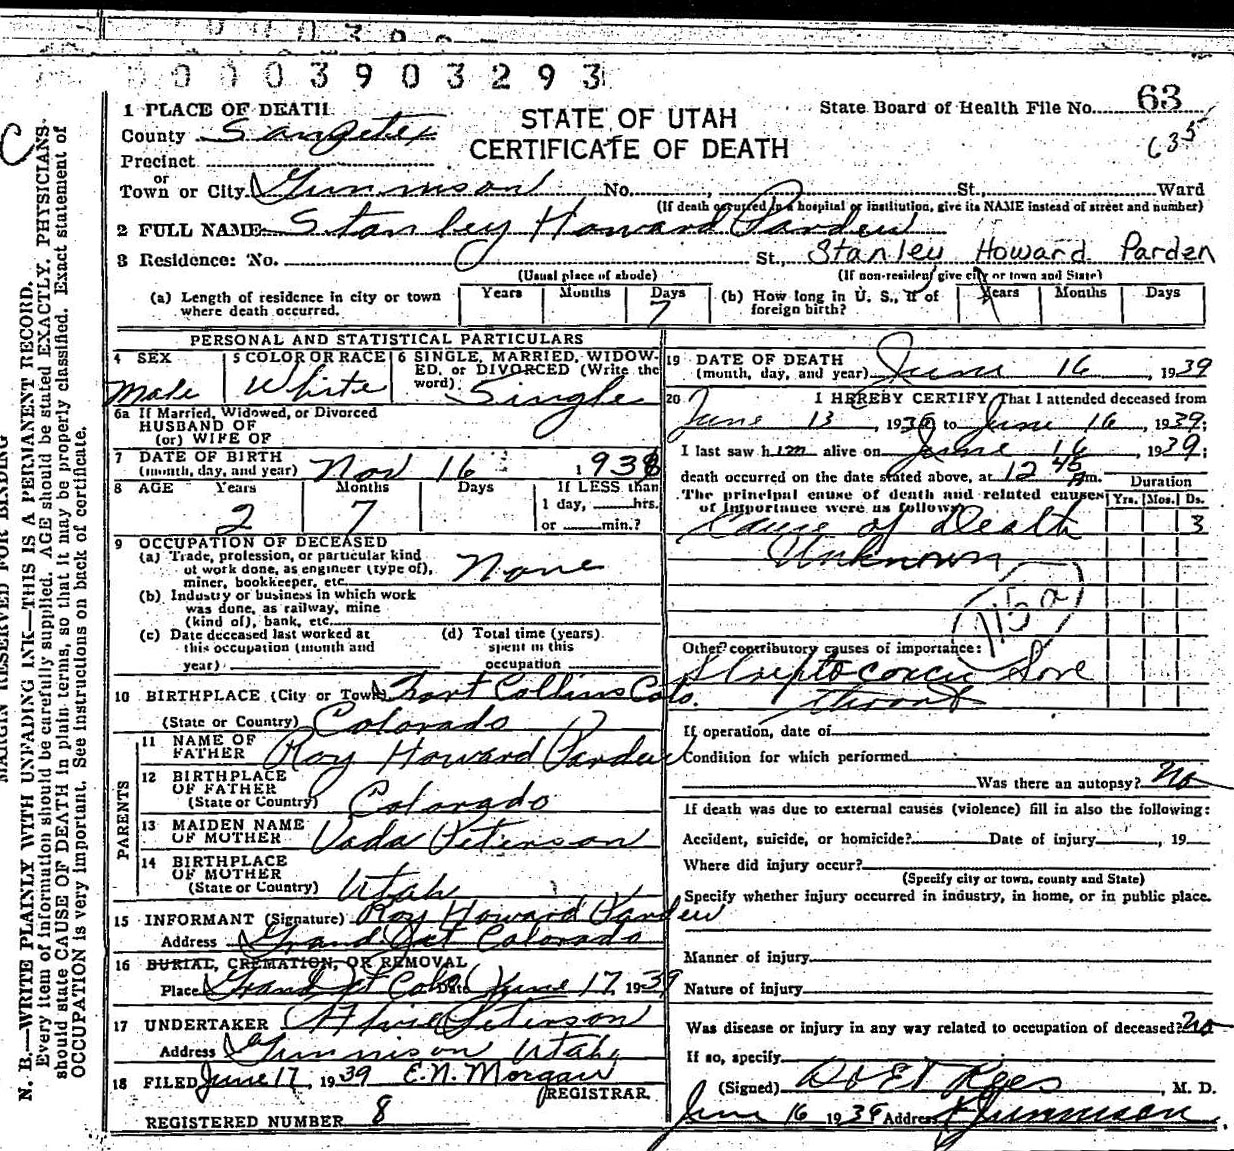 0 0 0 0 3 9 0 3 2 9 3
63
635
C
MARGIN RESERVED FOR BINDING
N. B.—WRITE PLAINLY WITH UNFADING INK—THIS IS A PERMANENT RECORD.
Every item of information should be carefully supplied. AGE should be stated EXACTLY. PHYSICIANS
should state CAUSE OF DEATH in plain terms, so that it may be properly classified. Exact statement of
OCCUPATION is very important. See instructions on back of certificate.
STATE OF UTAH
CERTIFICATE OF DEATH
State Board of Health File No.
1 PLACE OF DEATH
County Sanpete
Precinct
or
Town or City Gunnison No. , St., Ward
(If death occurred in a hospital or institution, give its NAME instead of street and number)
2 FULL NAME Stanley Howard Parden
3 Residence: No. St., Stanley Howard Parden
(Usual place of abode) (If non-resident give city or town and State)
(a) Length of residence in city or town where death occurred. Years Months Days 7
(b) How long in U. S., if of foreign birth? Years Months Days
PERSONAL AND STATISTICAL PARTICULARS
4 SEX Male
5 COLOR OR RACE White
6 SINGLE, MARRIED, WIDOWED, or DIVORCED (Write the word) Single
6a If Married, Widowed, or Divorced
HUSBAND OF
(or) WIFE OF
7 DATE OF BIRTH
(month, day, and year) Nov 16 1936
8 AGE Years 2 Months 7 Days If LESS than
1 day, hrs.
or min.?
9 OCCUPATION OF DECEASED
(a) Trade, profession, or particular kind
of work done, as engineer (type of),
miner, bookkeeper, etc. None
(b) Industry or business in which work
was done, as railway, mine
(kind of), bank, etc.
(c) Date deceased last worked at
this occupation (month and
year)
(d) Total time (years)
spent in this
occupation
10 BIRTHPLACE (City or Town) Fort Collins Colo.
(State or Country) Colorado
PARENTS
11 NAME OF FATHER Roy Howard Parden
12 BIRTHPLACE OF FATHER
(State or Country) Colorado
13 MAIDEN NAME OF MOTHER Vada Peterson
14 BIRTHPLACE OF MOTHER
(State or Country) Utah
15 INFORMANT (Signature) Roy Howard Parden
Address Grand Jct Colorado
16 BURIAL, CREMATION, OR REMOVAL
Place Grand Jct Colo Date June 17, 1939
17 UNDERTAKER Peterson
Address Gunnison Utah
18 FILED June 17, 1939 E.N. Morgan
REGISTRAR.
REGISTERED NUMBER 8
19 DATE OF DEATH
(month, day, and year) June 16, 1939
20 I HEREBY CERTIFY, That I attended deceased from
June 13, 1939 to June 16, 1939;
I last saw h im alive on June 16, 1939;
death occurred on the date stated above, at 12 45 m.
The principal cause of death and related causes
of importance were as follows:
Duration
Yrs. Mos. Ds.
Cause of Death 3
Unknown
115a
Other contributory causes of importance:
Streptococcic Sore
throat
If operation, date of
Condition for which performed
Was there an autopsy? No
If death was due to external causes (violence) fill in also the following:
Accident, suicide, or homicide? Date of injury , 19
Where did injury occur?
(Specify city or town, county and State)
Specify whether injury occurred in industry, in home, or in public place.
Manner of injury
Nature of injury
Was disease or injury in any way related to occupation of deceased? no
If so, specify
(Signed) Rees, M. D.
June 16 1939 Address Gunnison